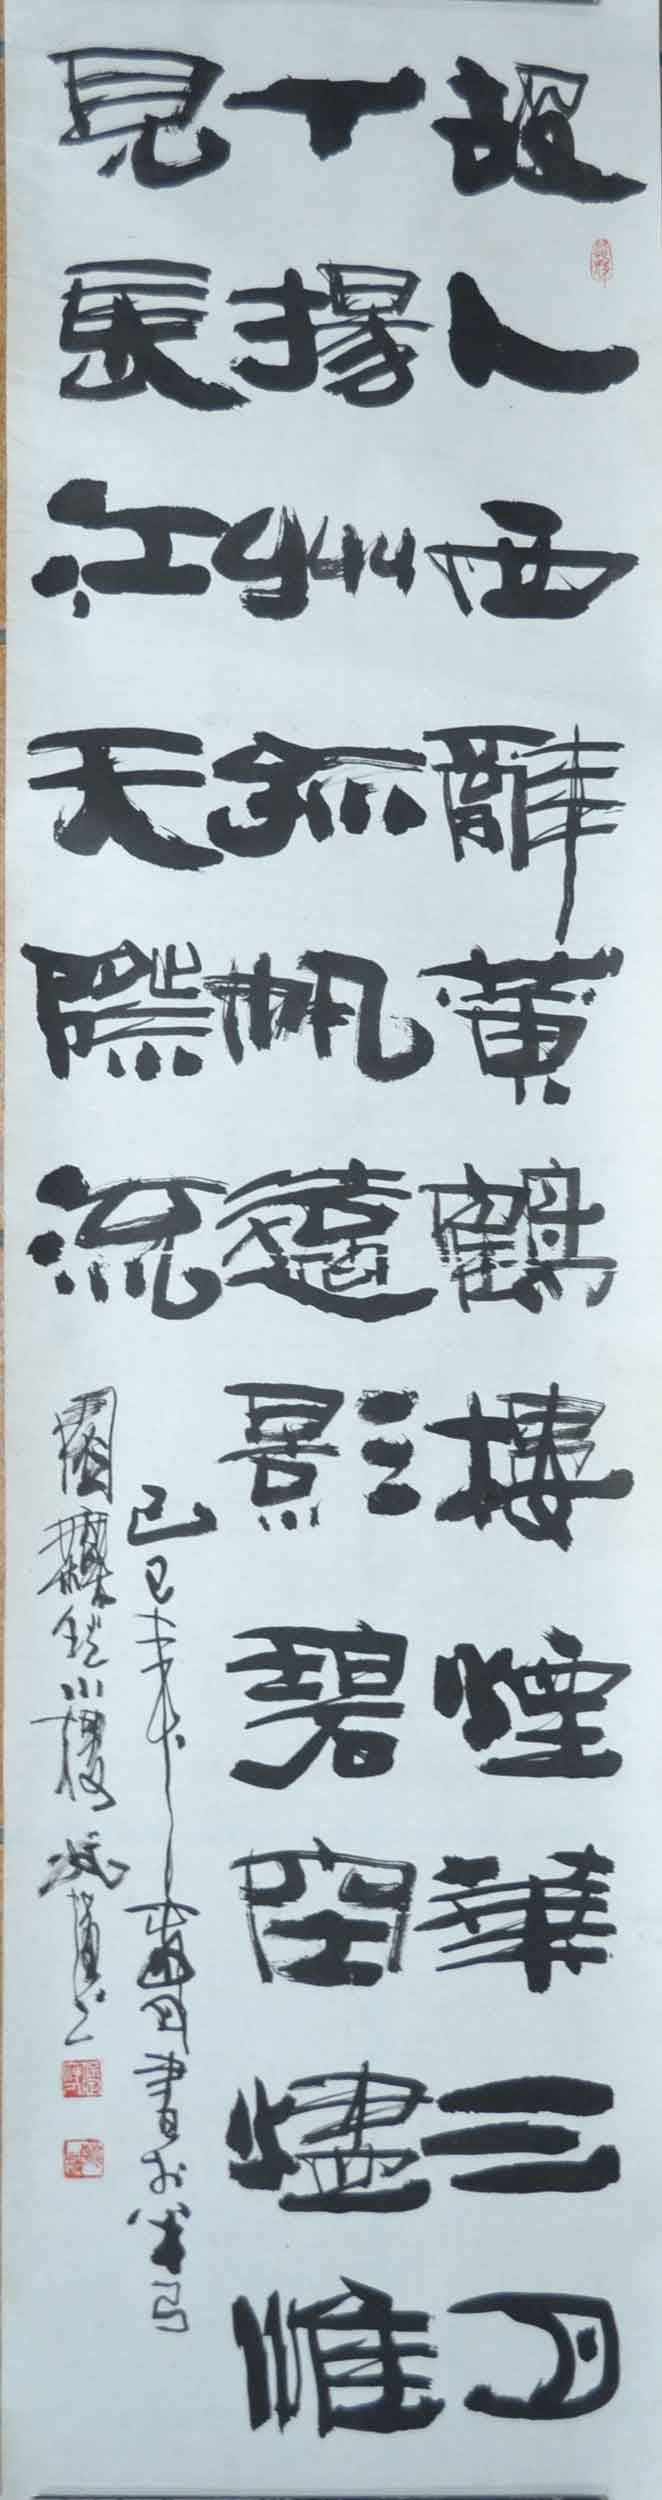 故人西辭黃鶴樓煙華三月
下揚州孤帆遠影碧空燼惟
見長江天際流
己巳年 書於半弓
園 小樓